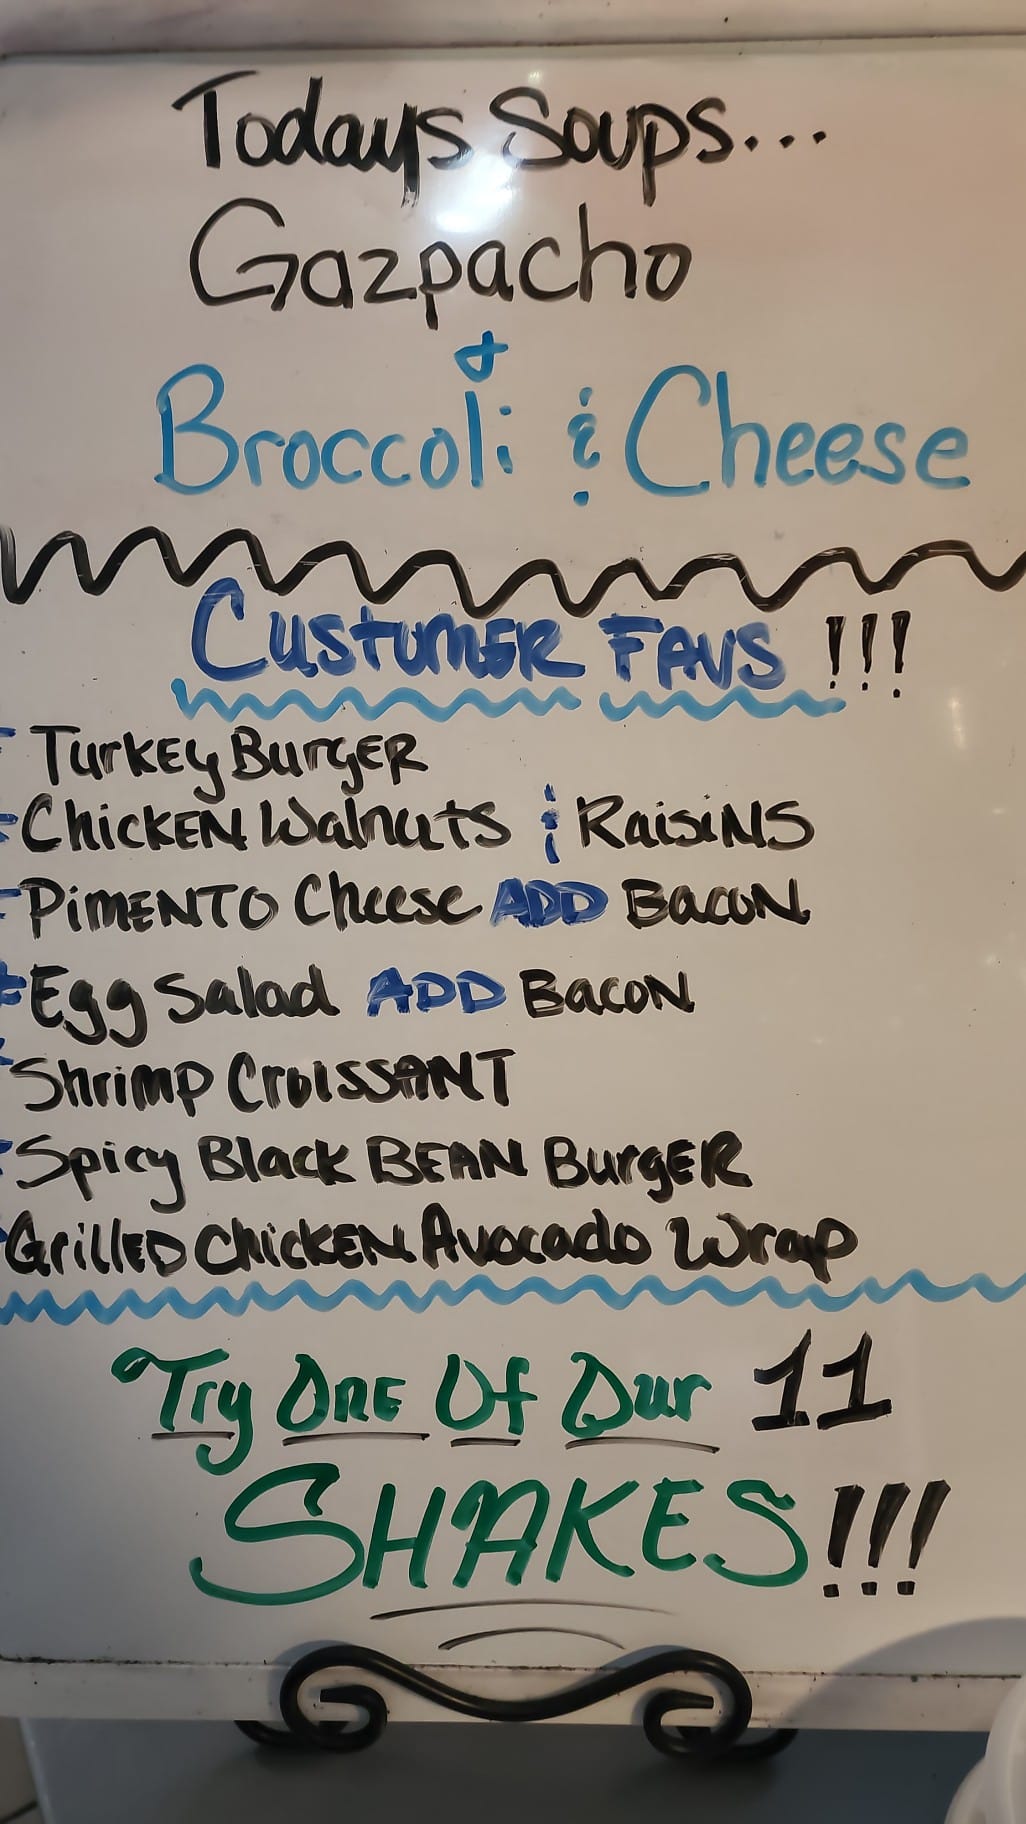 Todays Soups...
Gazpacho
&
Broccoli & Cheese
Custumer Favs !!!
Turkey Burger
Chicken Walnuts & Raisins
Pimento Cheese ADD Bacon
Egg Salad ADD Bacon
Shrimp Croissant
Spicy Black Bean Burger
Grilled Chicken Avocado Wrap
Try One Of Our 11
SHAKES!!!